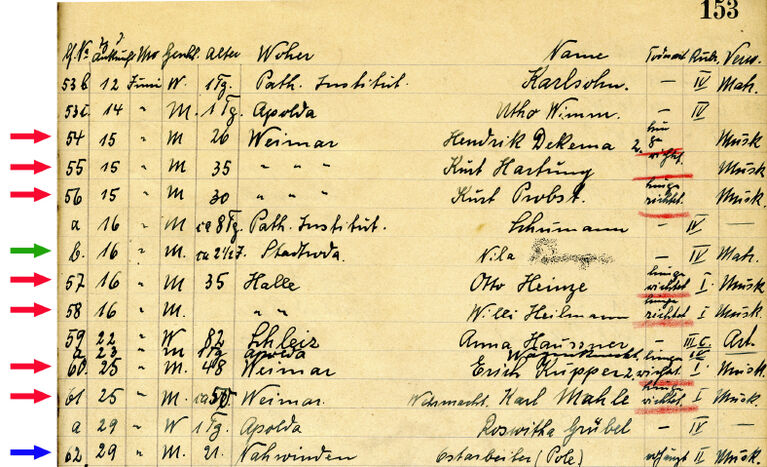 153
Lf. No Ankunft Mo Geschl. Alter Woher Name Todesart Rubr. Verw.
53b 12 Juni W. 1 Tg. Path. Institut. Karlsohn. – IV Mak.
53c. 14 " M. 1 Tg. Apolda Utho Wimm. – IV
54 15 " M 26 Weimar Hendrik Dekema 2. hingerichtet. Musk
55 15 " M 35 " " " Kurt Hartung Musk
56 15 " M 30 " " " Kurt Probst. hingerichtet. Musk.
a 16 " M ca 8 Tg. Path. Institut. Schumann – IV –
b. 16 " M. ca 2 1/2 J. Stadtroda. Nila – IV Mak.
57 16 " M 35 Halle Otto Heinze hingerichtet I. Musk
58 16 " M. " " Willi Heilmann hingerichtet I Musk.
59 22 " W 82 Schleiz Anna Haussner – III c. Art.
a 23 " M 1 Tg Apolda – IV –
60. 25 " M. 48 Weimar Erich Kupper 2. hingerichtet. I. Musk.
61 25 " M. ca 50 Weimar. Wehrmacht. Karl Mahle hingerichtet. I Musk
a 29 " W 1 Tg. Apolda Roswitha Grübel – IV –
62. 29 " M. 21. Nahwinden Ostarbeiter (Pole). erhängt II Musk.